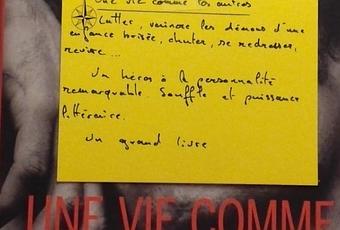 Une vie comme les autres
Lutter, vaincre les démons d'une
enfance brisée, chuter, se redresser,
revivre...
Un héros à la personnalité
remarquable. Souffle et puissance
littéraire.
Un grand livre
UNE VIE COMME